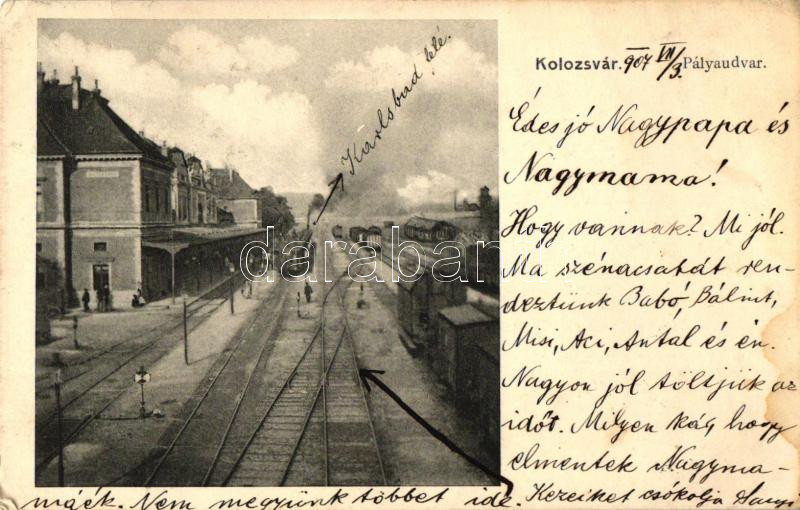 Karlsbad felé.
Kolozsvár. 907 VII/3. Pályaudvar.
Édes jó Nagypapa és
Nagymama!
Hogy vannak? Mi jól.
Ma szénacsatát ren-
deztünk Babó, Bálint,
Misi, Aci, Antal és én.
Nagyon jól töltjük az
időt. Milyen kár, hogy
elmentek Nagyma-
máék. Nem megyünk többet ide. Kezeiket csókolja
darabanth.com